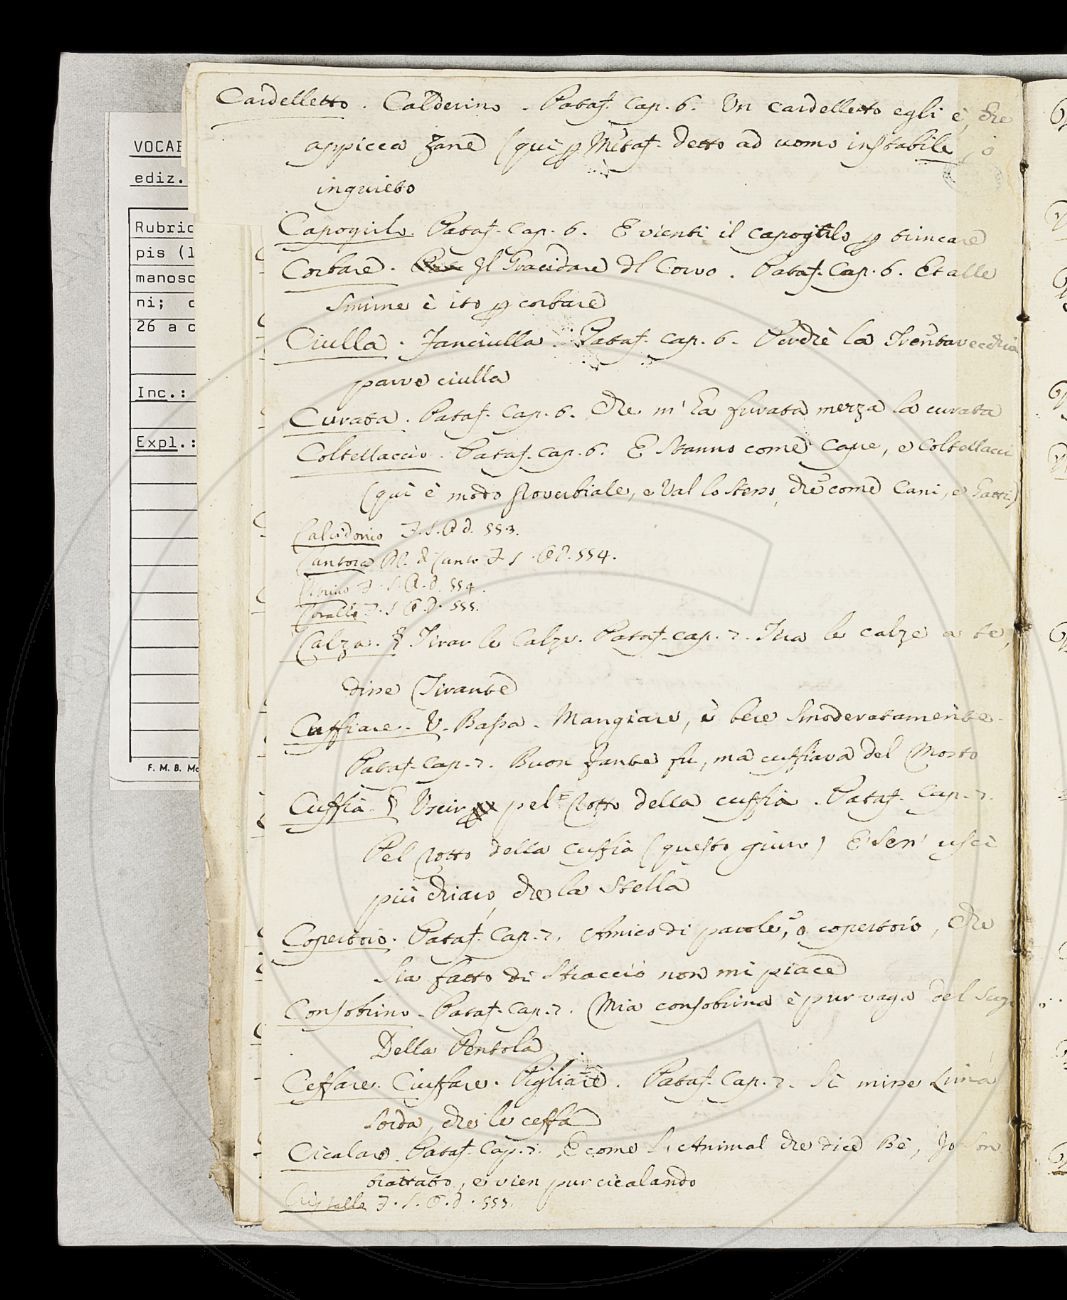 VOCAB
ediz.
Rubric
pis (1
manosc
ni; c
26 a c
Inc.:
Expl.:
F. M. B. Mo
Cardelletto. Calderino. Pataf. Cap. 6. Un cardelletto egli è, che
appicca zane (qui p Metaf. detto ad uomo instabile, o
inquieto
Capoquilo. Pataf. Cap. 6. E vienti il capogilo p trincare
Corbare. Il Gracidare dl Corvo. Pataf. Cap. 6. Et alle
Smirne è ito p corbare
Ciulla. Fanciulla. Pataf. cap. 6. Perchè la
parve ciulla
Curata. Pataf. Cap. 6. Che m'ha furata mezza la curata
Coltellaccio. Pataf. Cap. 6. E stanno come Cane, e Coltellacci
(qui è modo proverbiale, e val lo stesso, che come Cani, e Gatti)
Calcidonio F. S. C. d. 553.
Cantora Pl. d Canto F. S. C. d. 554.
F. S. C. d. 554.
Corallo F. S. C. d. 555.
Calza. § Tirar le Calze. Pataf. cap. 7. Tira le calze a te,
disse Tirante
Cuffiare. V. Bassa. Mangiare, è bere smoderatamente.
Pataf. Cap. 7. Buon fante fu, ma cuffiava del Mosto
Cuffia. § Uscir pel rotto della cuffia. Pataf. Cap. 7.
Pel rotto della Cuffia (questo giuro) E sen' uscì
più chiaro che la Stella
Copertoio. Pataf. Cap. 7. Amico di parole, o copertoio, che
Sia fatto di Straccio non mi piace
Consobrino. Pataf. Cap. 7. Mia consobrina è pur vaga del
Della Pentola
Ceffare. Ciuffare. Pigliare. Pataf. Cap. 7. Si mise Lima
Sorda, che le ceffa
Cicalare. Pataf. Cap. 7. E come Animal che dice Bè, Io son
trattato, e vien pur cicalando
Cristallo F. S. C. d. 553.